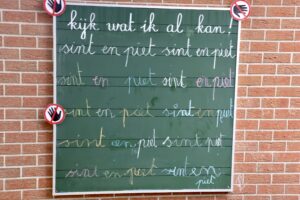 kijk wat ik al kan!
sint en piet sint en piet
sint en piet sint en piet
sint en piet sint en piet
sint en piet sint piet
sint en piet sint en
piet